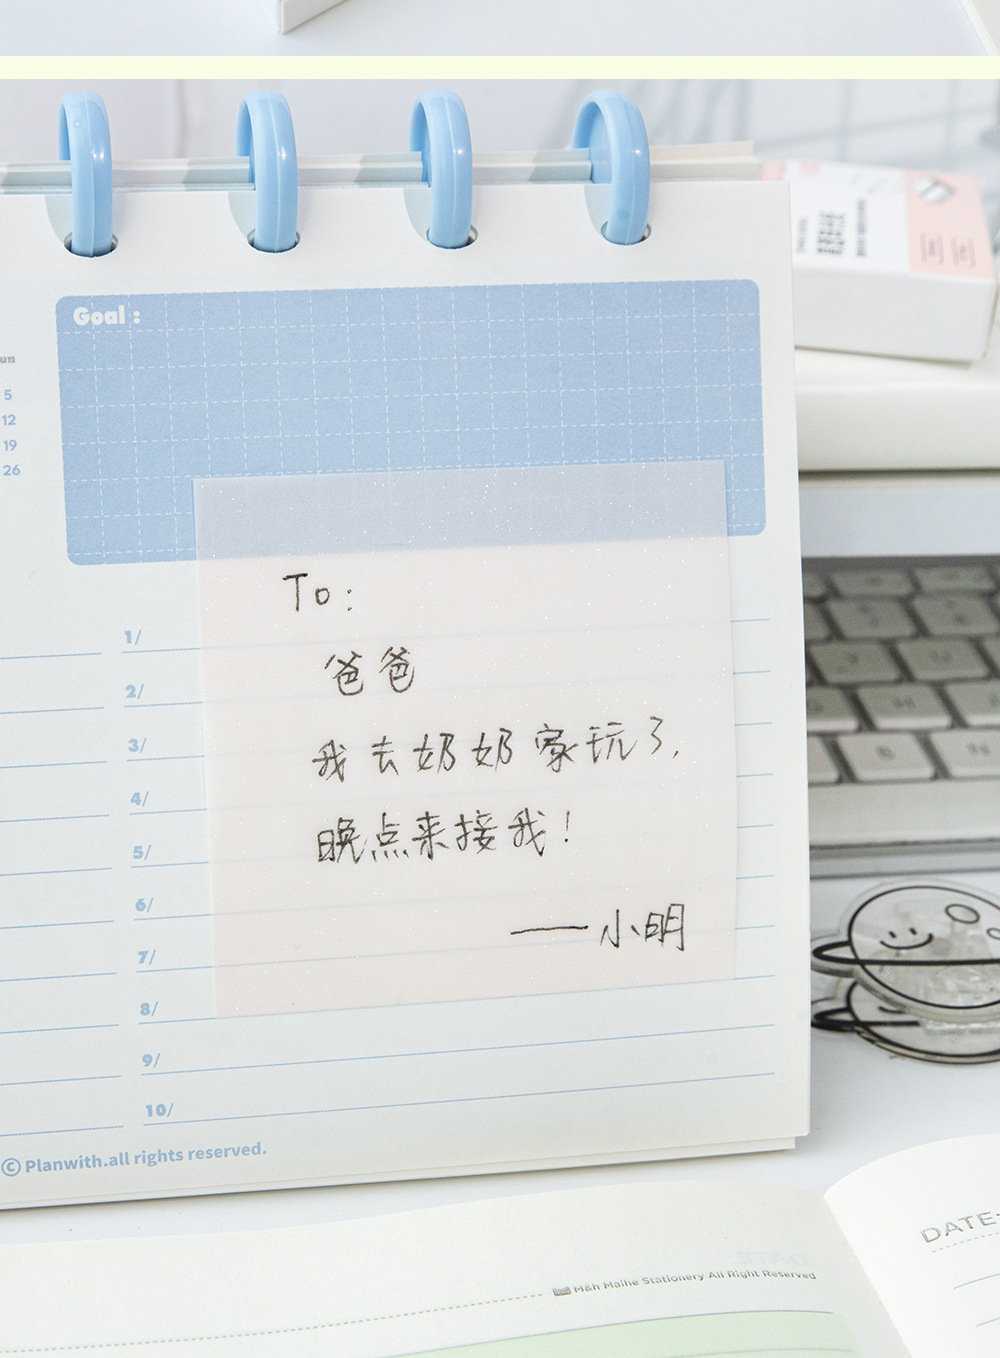 Goal :
un
5
12
19
26
To:
爸爸
我去奶奶家玩了,
晚点来接我!
——小明
1/
2/
3/
4/
5/
6/
7/
8/
9/
10/
© Planwith.all rights reserved.
DATE
M&h Maihe Stationery All Right Reserved
B
N